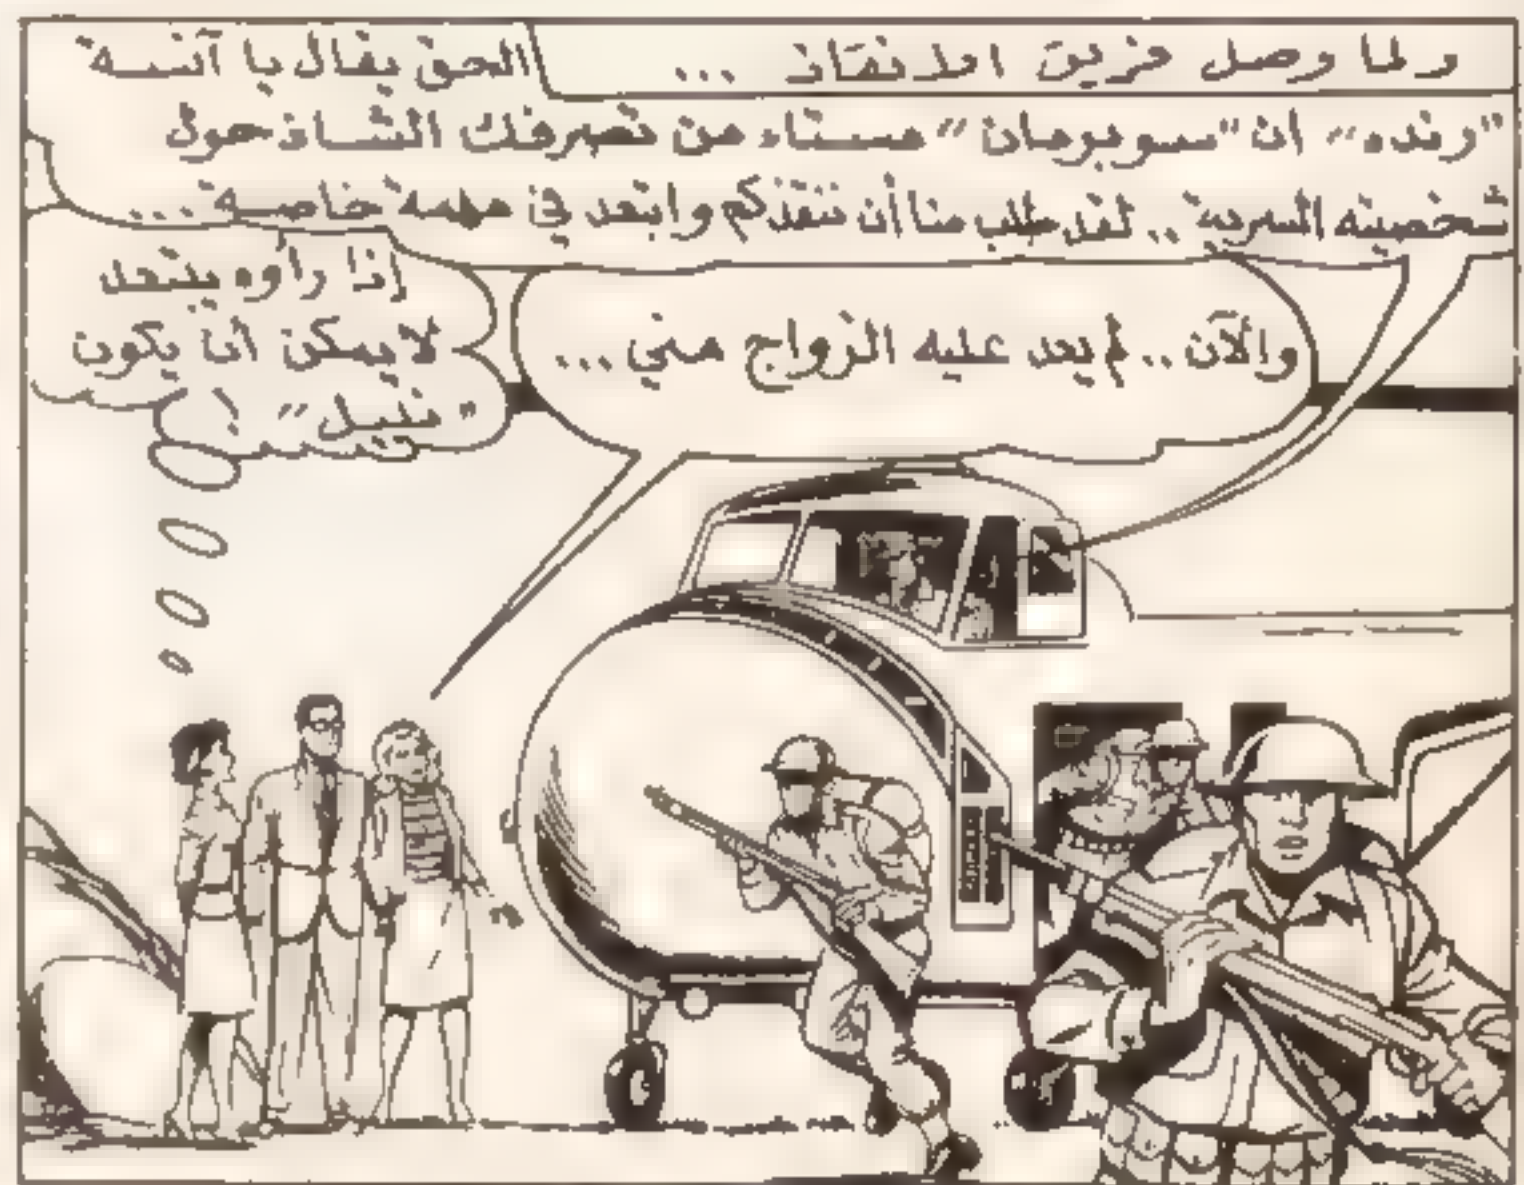 ولما وصل فريق الانقاذ ...
الحق يقال يا آنسة
"رنده" ان "سوبرمان" مستاء من تصرفك الشاذ حول
شخصيته السرية .. لقد طلب منا أن ننقذكم وابتعد في مهمة خاصة ...
والآن .. لم يعد عليه الزواج مني ...
إذا رأوه يبتعد
لا يمكن أن يكون
"نبيل" !